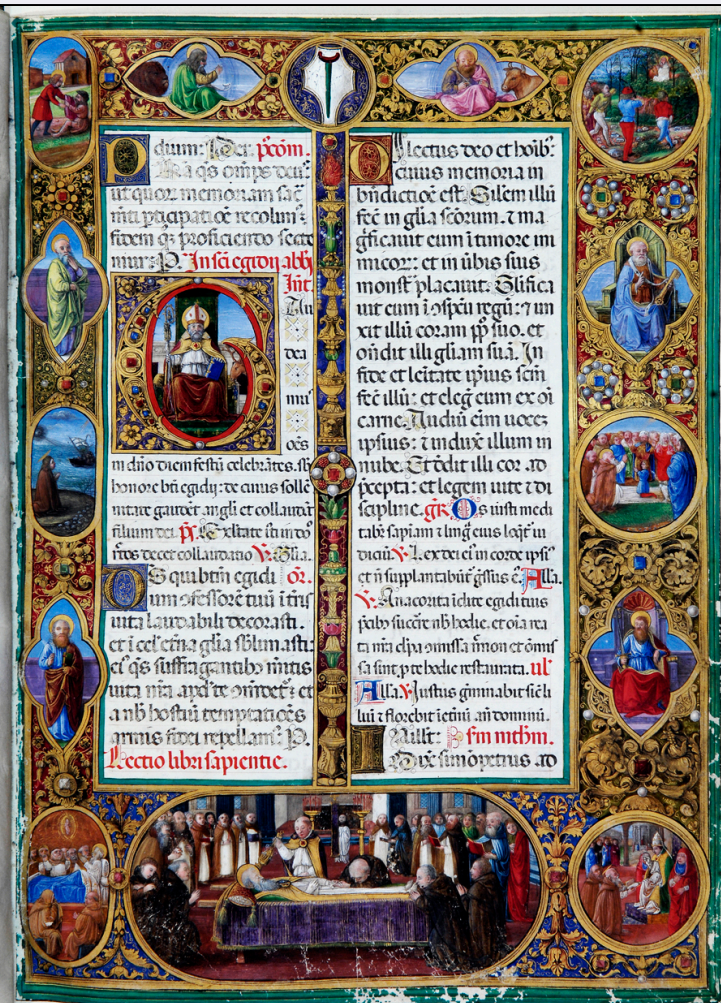 dium: Per. p̄com.
ut quor memoriam sac̄
mti pticipatiōe recolim⁹
fidem q̄; proficiendo secte
mur: P. In sc̄i egidij abb̄
Int.
dea
mu
oēs
in dn̄o diem festū celebrātes. sb̄
honore bti egidij: de cuius sollē
nitate gaudēt angli et collaudāt
filium dei. p̄s. Exltate iusti in dn̄o
rtōs decet collaudatio. V. Glia.
DS qui btm̄ egidi or̄.
um ofessorē tuū ī tris
uita laudabili decorasti.
et ī cel etna glia sblimasti:
ei⁹ qs suffragantib⁹ mitis
uita nr̄a apd te omdet: et
a nb̄ hostiū temptatiōes
armis fidei repellant. P.
Lectio libri sapientie.
Dilectus deo et hoib⁹:
cuius memoria in
bn̄dictiōe est. Silem illū
fec̄ in glia sc̄orum. ⁊ ma
gficauit eum ī timore im
micor: et in ūbis suis
monst placauit. Glifica
uit eum ī ospcu regū: ⁊ iu
xit illū coram pp̄ suo. et
on̄dit illi gliam suā. In
fide et leītate ip̄ius sc̄m
fec̄ illū: et eleg eum ex oī
carne. Audiū eīm uocez
ipsius: ⁊ induxē illum in
nube. Et dedit illi cor ad
p̄cepta: et legem uite ⁊ di
scipline. gr̄. Os iusti medi
tab̄ sapiam ⁊ ling eius loqr̄ iu
diciū V. Lex dei ei⁹ in corde ipsi⁹
et n̄ supplantabūt̄ gssus ē. Alla.
V. Anacorita īclite egidi tuis
p̄cib⁹ succrē nb̄ hodie. et oīa rea
ta nr̄a clpa omissa
sa sunt p te hodie restaurata. ul̄
Alla V. Iustus gminabit sic̄ li
liū ⁊ florebit ī etnū añ dominū.
Aullt: Sm mthm.
Dixē simō petrus ad